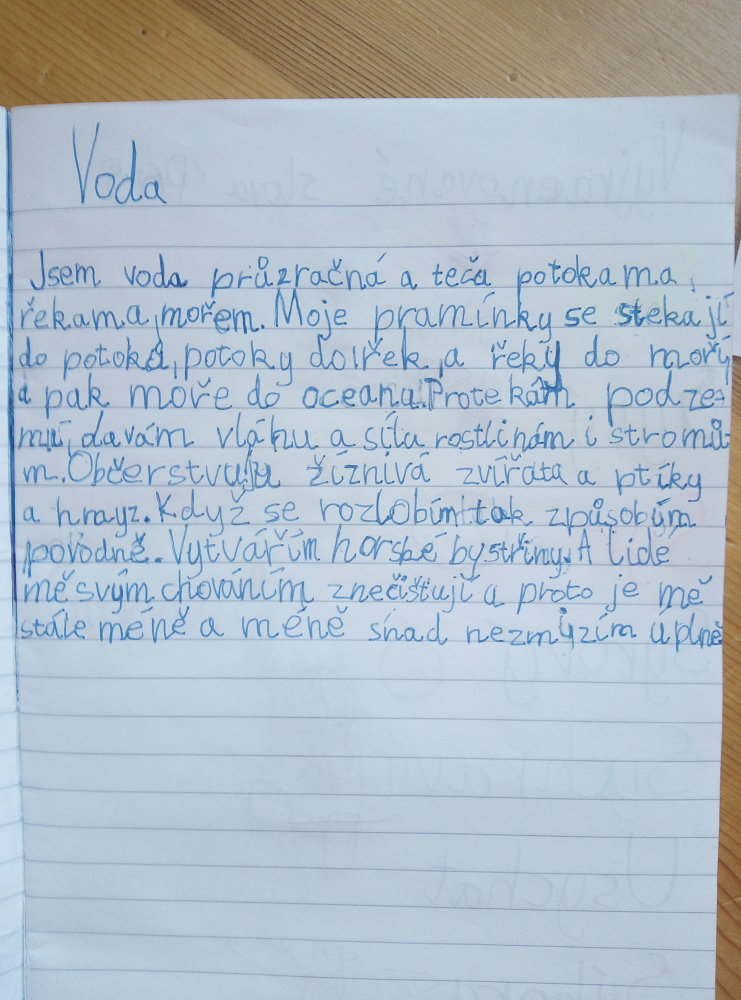 Voda
Jsem voda průzračná a teču potokama,
řekama, mořem. Moje pramínky se stekají
do potoků, potoky do řek, a řeky do moří
a pak moře do oceanu. Protekám podze-
mní, davám vláhu a sílu rostlinám i stromů-
m. Občerstvuju žíznivá zvířata a ptíky
a hmyz. Když se rozlobím tak způsobým
povodně. Vytvářím horské bystřiny. A lidé
mě svým chováním znečišťují a proto je mě
stále méně a méně snad nezmyzím uplně